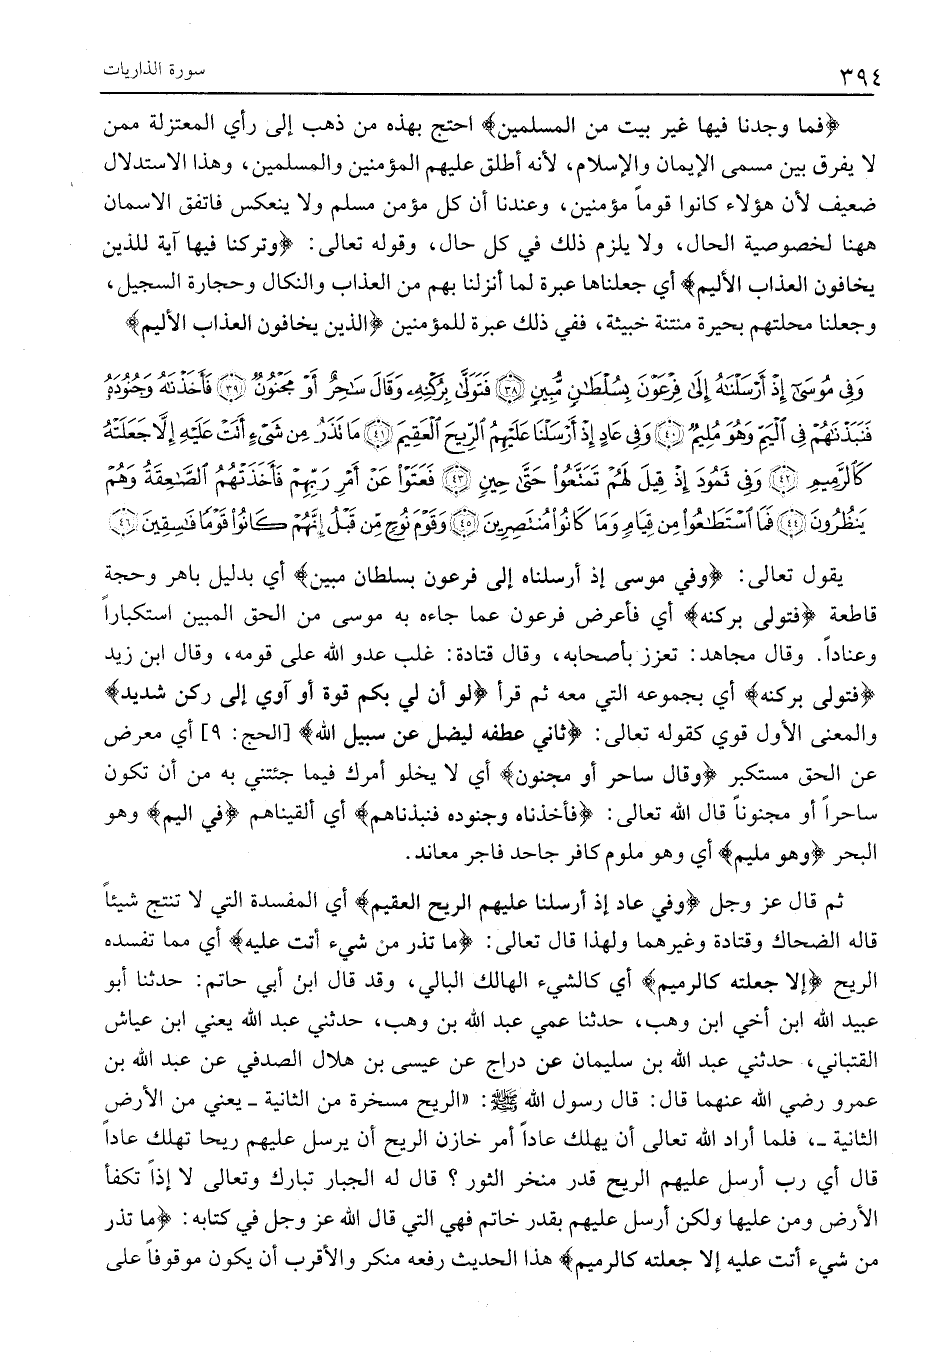 ٣٩٤
سورة الذاريات
﴿فما وجدنا فيها غير بيت من المسلمين﴾ احتج بهذه من ذهب إلى رأي المعتزلة ممن
لا يفرق بين مسمى الإيمان والإسلام، لأنه أطلق عليهم المؤمنين والمسلمين، وهذا الاستدلال
ضعيف لأن هؤلاء كانوا قوماً مؤمنين، وعندنا أن كل مؤمن مسلم ولا ينعكس فاتفق الاسمان
ههنا لخصوصية الحال، ولا يلزم ذلك في كل حال، وقوله تعالى: ﴿وتركنا فيها آية للذين
يخافون العذاب الأليم﴾ أي جعلناها عبرة لما أنزلنا بهم من العذاب والنكال وحجارة السجيل،
وجعلنا محلتهم بحيرة منتنة خبيثة، ففي ذلك عبرة للمؤمنين ﴿الذين يخافون العذاب الأليم﴾
وَفِي مُوسَىٰٓ إِذْ أَرْسَلْنَٰهُ إِلَىٰ فِرْعَوْنَ بِسُلْطَٰنٍ مُّبِينٍ ﴿٣٨﴾ فَتَوَلَّىٰ بِرُكْنِهِۦ وَقَالَ سَٰحِرٌ أَوْ مَجْنُونٌ ﴿٣٩﴾ فَأَخَذْنَٰهُ وَجُنُودَهُۥ
فَنَبَذْنَٰهُمْ فِي ٱلْيَمِّ وَهُوَ مُلِيمٌ ﴿٤٠﴾ وَفِي عَادٍ إِذْ أَرْسَلْنَا عَلَيْهِمُ ٱلرِّيحَ ٱلْعَقِيمَ ﴿٤١﴾ مَا تَذَرُ مِن شَيْءٍ أَتَتْ عَلَيْهِ إِلَّا جَعَلَتْهُ
كَٱلرَّمِيمِ ﴿٤٢﴾ وَفِي ثَمُودَ إِذْ قِيلَ لَهُمْ تَمَتَّعُوا۟ حَتَّىٰ حِينٍ ﴿٤٣﴾ فَعَتَوْا۟ عَنْ أَمْرِ رَبِّهِمْ فَأَخَذَتْهُمُ ٱلصَّٰعِقَةُ وَهُمْ
يَنظُرُونَ ﴿٤٤﴾ فَمَا ٱسْتَطَٰعُوا۟ مِن قِيَامٍ وَمَا كَانُوا۟ مُنتَصِرِينَ ﴿٤٥﴾ وَقَوْمَ نُوحٍ مِّن قَبْلُ إِنَّهُمْ كَانُوا۟ قَوْمًا فَٰسِقِينَ ﴿٤٦﴾
يقول تعالى: ﴿وفي موسى إذ أرسلناه إلى فرعون بسلطان مبين﴾ أي بدليل باهر وحجة
قاطعة ﴿فتولى بركنه﴾ أي فأعرض فرعون عما جاءه به موسى من الحق المبين استكباراً
وعناداً. وقال مجاهد: تعزز بأصحابه، وقال قتادة: غلب عدو الله على قومه، وقال ابن زيد
﴿فتولى بركنه﴾ أي بجموعه التي معه ثم قرأ ﴿لو أن لي بكم قوة أو آوي إلى ركن شديد﴾
والمعنى الأول قوي كقوله تعالى: ﴿ثاني عطفه ليضل عن سبيل الله﴾ [الحج: ٩] أي معرض
عن الحق مستكبر ﴿وقال ساحر أو مجنون﴾ أي لا يخلو أمرك فيما جئتني به من أن تكون
ساحراً أو مجنوناً قال الله تعالى: ﴿فأخذناه وجنوده فنبذناهم﴾ أي ألقيناهم ﴿في اليم﴾ وهو
البحر ﴿وهو مليم﴾ أي وهو ملوم كافر جاحد فاجر معاند.
ثم قال عز وجل ﴿وفي عاد إذ أرسلنا عليهم الريح العقيم﴾ أي المفسدة التي لا تنتج شيئاً
قاله الضحاك وقتادة وغيرهما ولهذا قال تعالى: ﴿ما تذر من شيء أتت عليه﴾ أي مما تفسده
الريح ﴿إلا جعلته كالرميم﴾ أي كالشيء الهالك البالي، وقد قال ابن أبي حاتم: حدثنا أبو
عبيد الله ابن أخي ابن وهب، حدثنا عمي عبد الله بن وهب، حدثني عبد الله يعني ابن عياش
القتباني، حدثني عبد الله بن سليمان عن دراج عن عيسى بن هلال الصدفي عن عبد الله بن
عمرو رضي الله عنهما قال: قال رسول الله ﷺ: «الريح مسخرة من الثانية ـ يعني من الأرض
الثانية ـ، فلما أراد الله تعالى أن يهلك عاداً أمر خازن الريح أن يرسل عليهم ريحا تهلك عاداً
قال أي رب أرسل عليهم الريح قدر منخر الثور ؟ قال له الجبار تبارك وتعالى لا إذاً تكفأ
الأرض ومن عليها ولكن أرسل عليهم بقدر خاتم فهي التي قال الله عز وجل في كتابه: ﴿ما تذر
من شيء أتت عليه إلا جعلته كالرميم﴾ هذا الحديث رفعه منكر والأقرب أن يكون موقوفاً على